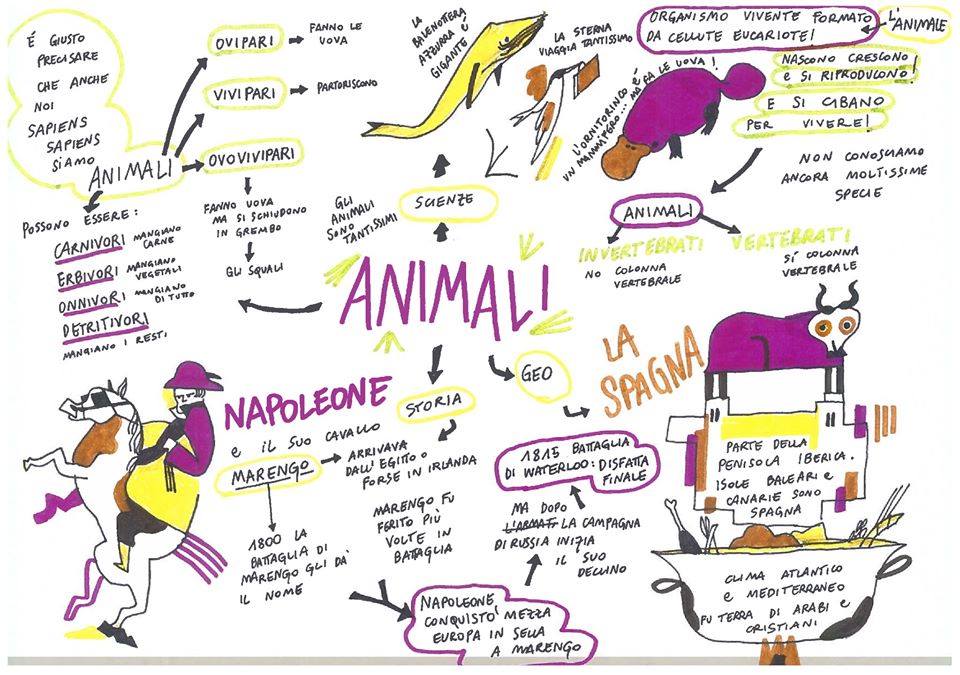 É GIUSTO
PRECISARE
CHE ANCHE
NOI
SAPIENS
SAPIENS
SIAMO
ANIMALI
OVIPARI
FANNO LE
UOVA
VIVIPARI
PARTORISCONO
OVOVIVIPARI
FANNO UOVA
MA SI SCHIUDONO
IN GREMBO
GLI SQUALI
POSSONO ESSERE:
CARNIVORI MANGIANO
CARNE
ERBIVORI MANGIANO
VEGETALI
ONNIVORI MANGIANO
DI TUTTO
DETRITIVORI
MANGIANO I RESTI
GLI
ANIMALI
SONO
TANTISSIMI
SCIENZE
LA
BALENOTTERA
AZZURRA É
GIGANTE
LA STERNA
VIAGGIA TANTISSIMO
L'ORNITORINCO É
UN MAMMIFERO... MA FA LE UOVA!
L'ANIMALE
ORGANISMO VIVENTE FORMATO
DA CELLUTE EUCARIOTE!
NASCONO CRESCONO
E SI RIPRODUCONO!
E SI CIBANO
PER VIVERE!
NON CONOSCIAMO
ANCORA MOLTISSIME
SPECIE
ANIMALI
INVERTEBRATI
NO COLONNA
VERTEBRALE
VERTEBRATI
SÍ COLONNA
VERTEBRALE
ANIMALI
STORIA
GEO
NAPOLEONE
E IL SUO CAVALLO
MARENGO
ARRIVAVA
DALL'EGITTO O
FORSE IN IRLANDA
1800 LA
BATTAGLIA DI
MARENGO GLI DÀ
IL NOME
MARENGO FU
FERITO PIÙ
VOLTE IN
BATTAGLIA
NAPOLEONE
CONQUISTÒ MEZZA
EUROPA IN SELLA
A MARENGO
MA DOPO
LA CAMPAGNA
DI RUSSIA INIZIA
IL SUO
DECLINO
1815 BATTAGLIA
DI WATERLOO: DISFATTA
FINALE
LA
SPAGNA
PARTE DELLA
PENISOLA IBERICA.
ISOLE BALEARI E
CANARIE SONO
SPAGNA
CLIMA ATLANTICO
E MEDITERRANEO
FU TERRA DI ARABI E
CRISTIANI